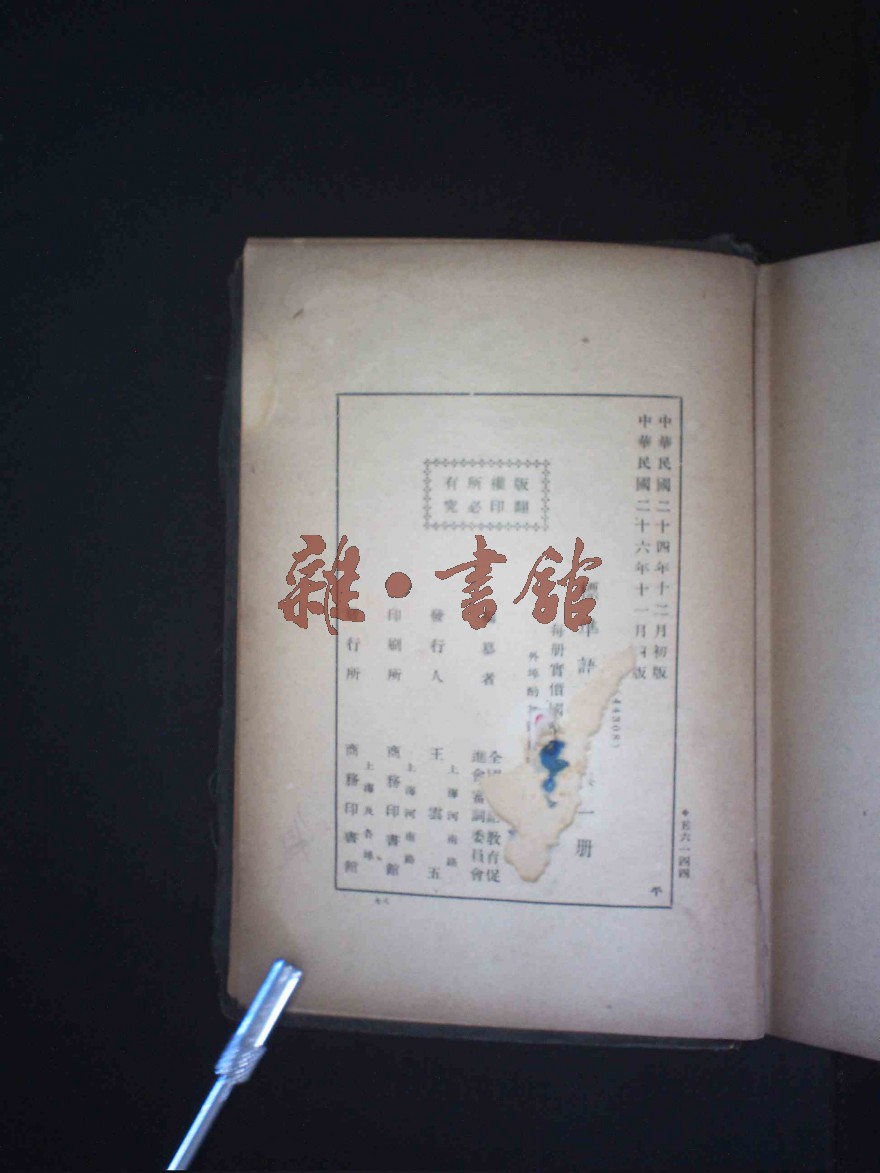 中華民國二十四年十二月初版
中華民國二十六年十一月版
(44308)
準語
一册
每册實價國
外埠酌
版權所有
翻印必究
纂者
全國教育促
進會審詞委員會
發行人
王雲五
上海河南路
印刷所
商務印書館
上海河南路
發行所
商務印書館
上海及各埠
民六一四四
平
雜·書館